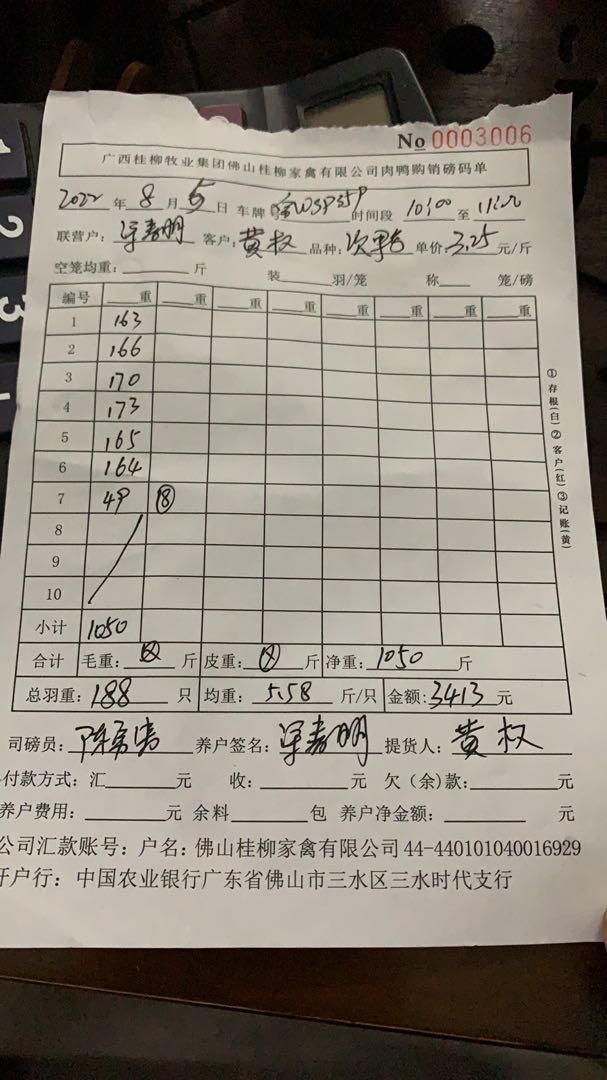 No 0003006
广西桂柳牧业集团佛山桂柳家禽有限公司肉鸭购销磅码单
2022年8月5日 车牌 时间段 10:00 至 11:00
联营户: 客户:黄权 品种: 单价:3.25元/斤
空笼均重:______斤 装______羽/笼 称____笼/磅
编号 ___重 ___重 ___重 ___重 ___重 ___重 ___重 ___重
1 163
2 166
3 170
4 173
5 165
6 164
7 49 ⑧
8
9
10
小计 1050
合计 毛重: 斤 皮重: 斤 净重:1050斤
总羽重:188只 均重:5.58斤/只 金额:3413元
司磅员: 养户签名: 提货人:黄权
付款方式:汇______元 收:______元 欠(余)款:______元
养户费用:______元 余料______包 养户净金额:______元
公司汇款账号:户名:佛山桂柳家禽有限公司 44-440101040016929
开户行:中国农业银行广东省佛山市三水区三水时代支行
①存根(白)②客户(红)③记账(黄)